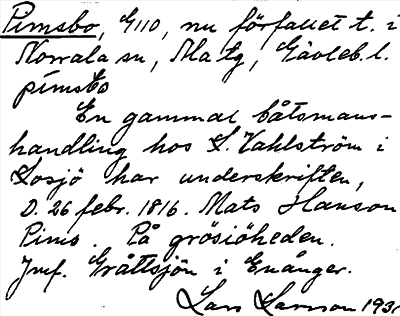 Pimsbo, G110, nu förfallet t. i
Norrala sn, Ma tg, Gävleb. l.
pímsbo
En gammal båtsmans-
handling hos L. Vahlström i
Losjö har underskriften,
D. 26 febr. 1816. Mats Hanson
Pims. På grösiöheden.
Jmf. Gråttsjön i Enånger.
Lars Larsson 1931